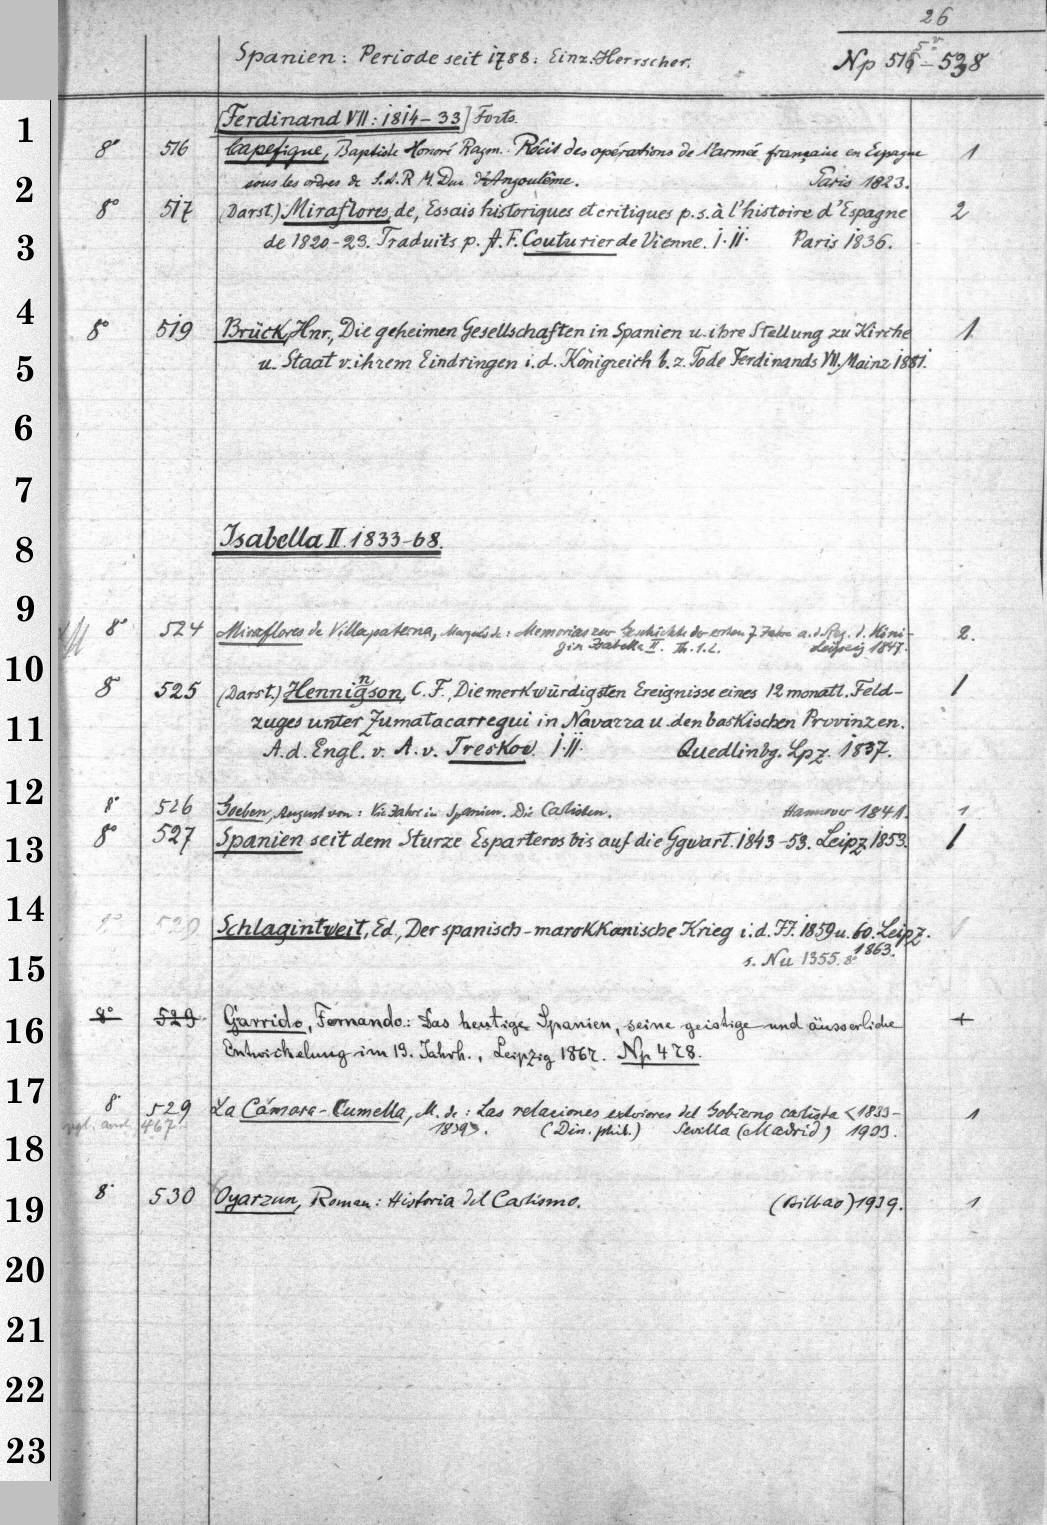 26
Spanien: Periode seit 1788: Einz. Herrscher. Np 516 – 538
1
[Ferdinand VII: 1814–33] Forts.
8° 516 Capefigue, Baptiste Honoré Raym. Récit des opérations de l'armée française en Espagne 1
2
sous les ordres de S.A.R M. Duc d'Angoulême. Paris 1823.
8° 517 (Darst.) Miraflores, de, Essais historiques et critiques p.s. à l'histoire d'Espagne 2
3
de 1820–23. Traduits p. A.F. Couturier de Vienne. I.II. Paris 1836.
4
8° 519 Brück, Hnr., Die geheimen Gesellschaften in Spanien u. ihre Stellung zu Kirche 1
5
u. Staat v. ihrem Eindringen i.d. Königreich b. z. Tode Ferdinands VII. Mainz 1881.
6
7
8
Isabella II. 1833–68.
9
8° 524 Miraflores de Villapaterna, Marquis de: Memorias zur Geschichte der ersten 7 Jahre a. d. Reg. d. Köni- 2.
10
gin Isabella II. Th. 1.2. Leipzig 1847.
8° 525 (Darst.) Henningson, C. F., Die merkwürdigsten Ereignisse eines 12 monatl. Feld- 1
11
zuges unter Zumatacarregui in Navarra u. den baskischen Provinzen.
A.d. Engl. v. A. v. Treskow. I.II. Quedlinbg. Lpz. 1837.
12
8° 526 Goeben, August von: Vier Jahre in Spanien. Die Carlisten. Hannover 1841. 1
13
8° 527 Spanien seit dem Sturze Esparteros bis auf die Ggwart. 1843–53. Leipz. 1853. 1
14
Schlagintweit, Ed., Der spanisch-marokkanische Krieg i.d. JJ. 1859 u. 60. Leipz.
15
1863.
s. Nu 1355. 8°
16
8° 529 Garrido, Fernando.: Das heutige Spanien, seine geistige und äusserliche +
Entwickelung im 19. Jahrh., Leipzig 1867. Np 478.
17
8° 529 La Cámara-Cumella, M. de: Las relaciones exteriores del Gobierno carlista < 1833– 1
vgl. auch 467. 1839>. (Diss. phil.) Sevilla (Madrid) 1933.
18
19
8° 530 Oyarzun, Roman: Historia del Carlismo. (Bilbao) 1939. 1
20
21
22
23